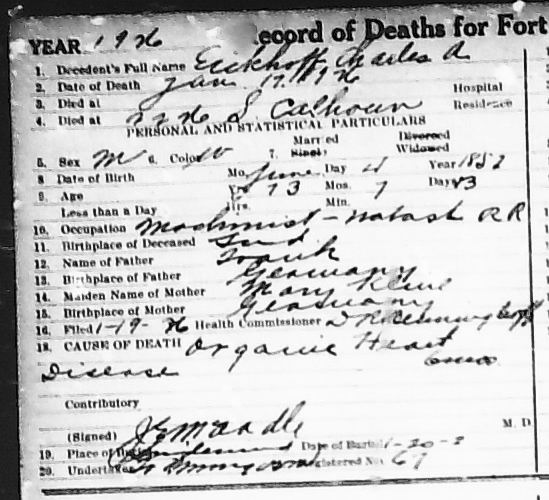 YEAR 1926 Record of Deaths for Fort
1. Decedent's Full Name Eickhoff, Charles A
2. Date of Death Jan 17. 1926
3. Died at Hospital
4. Died at 2226 S. Calhoun Residence
PERSONAL AND STATISTICAL PARTICULARS
Married Divorced
5. Sex M 6. Color W 7. Single Widowed
8 Date of Birth Mo. June Day 4 Year 1852
9. Age Yrs. 73 Mos. 7 Days 13
Less than a Day Hrs. Min.
10. Occupation Machinist - Wabash RR
11. Birthplace of Deceased Ind
12. Name of Father Frank
13. Birthplace of Father Germany
14. Maiden Name of Mother Mary
15. Birthplace of Mother Germany
16. Filed 1-19-26 Health Commissioner
18. CAUSE OF DEATH Organic Heart
Disease
Contributory
(Signed) M. D.
19. Place of Burial Lindenwood Date of Burial 1-20-2
20. Undertaker Registered No. 67